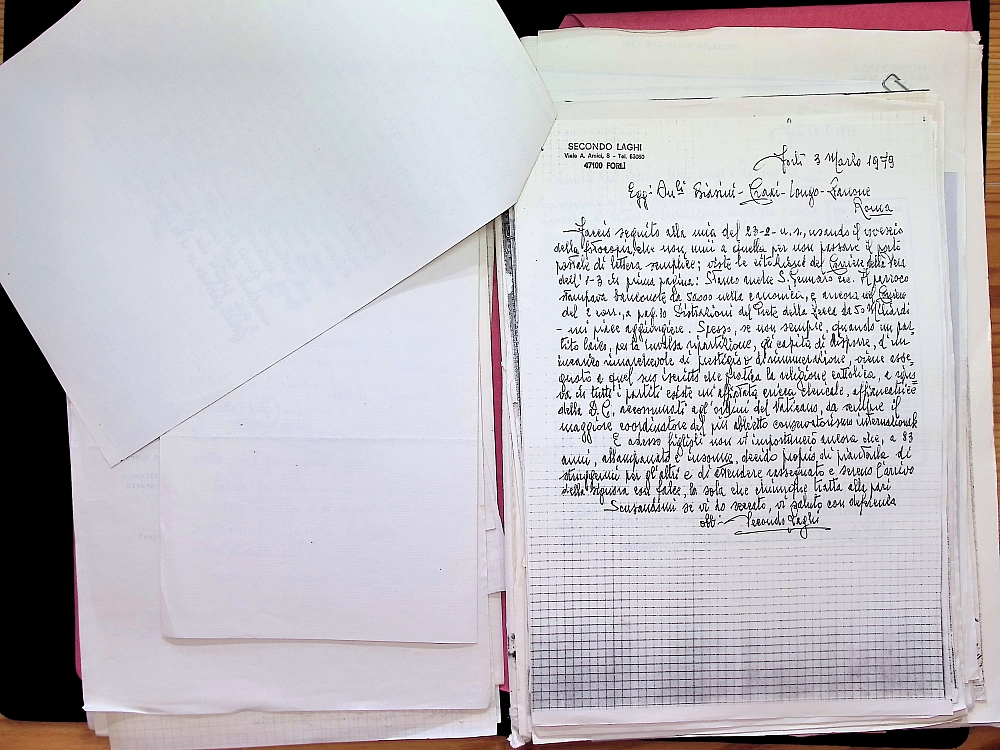 SECONDO LAGHI
Viale A. Amici, 8 - Tel. 63060
47100 FORLÌ
Forlì 3 Marzo 1979
Egg: On.li Biasini - Craxi - Longo - Zanone
Roma
Faccio seguito alla mia del 23-2- u.s., usando il rovescio
della fotocopia, che non unii a quella per non passare il porto
postale di lettera semplice; viste le del Corriere della Sera
dell' 1-3 in prima pagina: anche S. Gennaro ecc. Il parroco
stampava banconote da 50000 nella canonica, e ancora nel Corriere
del 2 corr., a pag. 10 Distrazioni del Prete della Zecca da 50 Miliardi
- mi piace aggiungere. Spesso, se non sempre, quando un par-
tito laico, per la ripartizione, gli capita di disporre, d'un
incarico rimarchevole di prestigio e di, viene asse-
gnato a quel suo iscritto che pratica la religione cattolica, e
va in tutti i partiti esiste un' cricca clericale,
della D.C., accomunati agl'ordini del Vaticano, da sempre il
maggiore coordinatore del più abbietto conservatorismo internazionale
E adesso figlioli non vi importunerò ancora che, a 83
anni, allampanato e insonne, decido proprio di piantarla di
per gl'altri e di attendere rassegnato e sereno l'arrivo
della Signora con falce, la sola che chiunque tratta alla pari
Scusandomi se vi ho seccato, vi saluto con deferenza
obb- Secondo Laghi